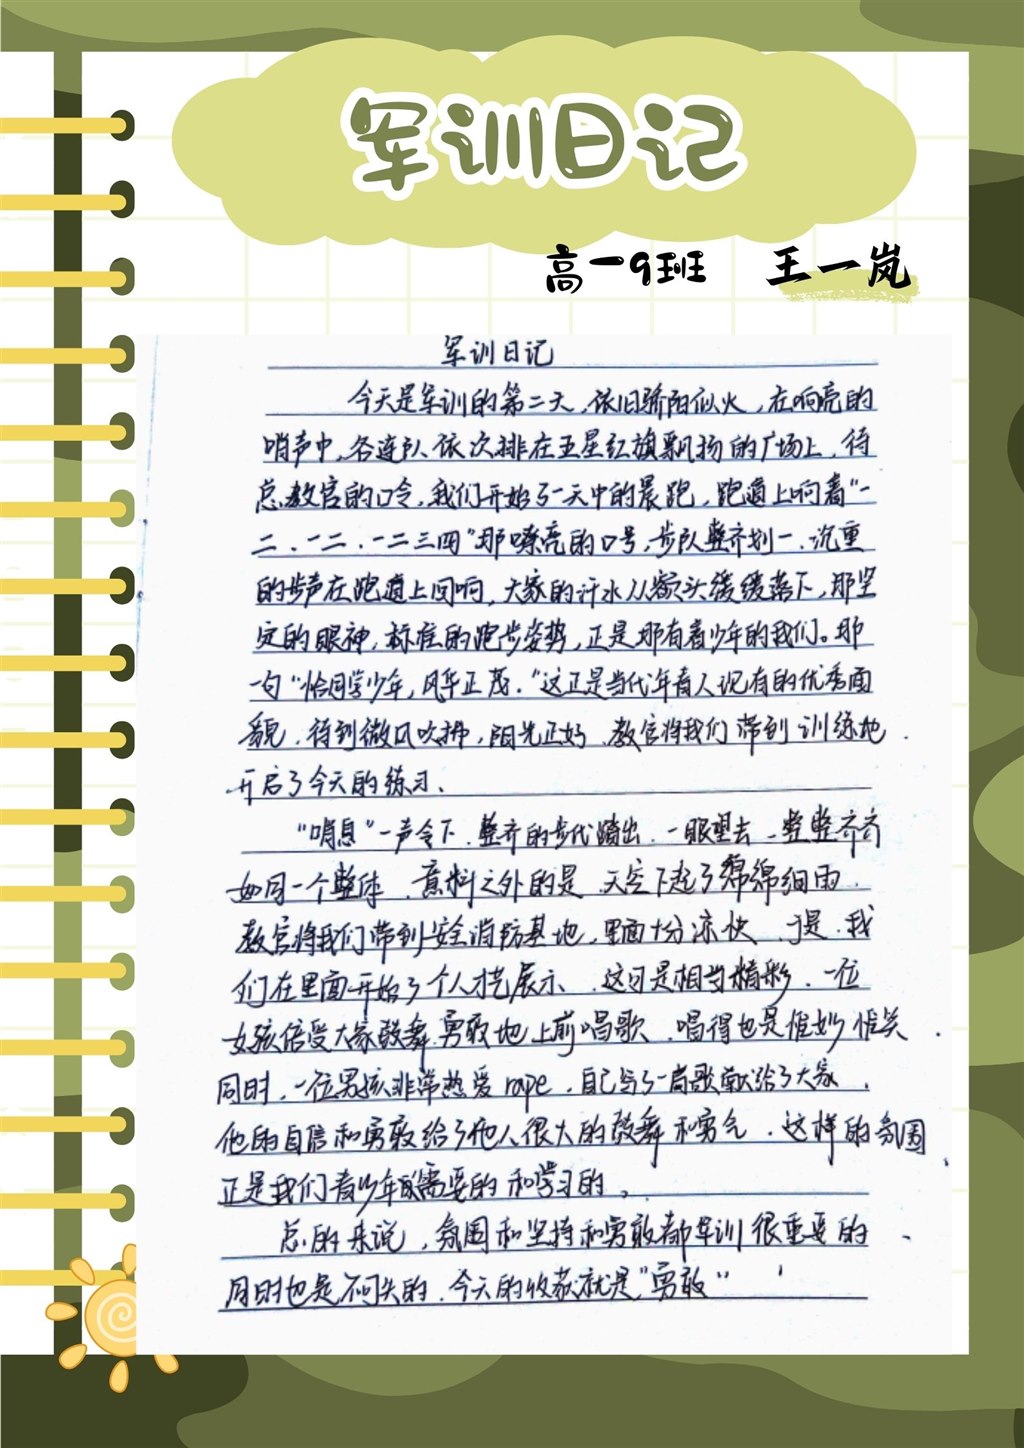 军训日记
高一9班 王一岚
军训日记
今天是军训的第二天,依旧骄阳似火,在响亮的
哨声中,各连队依次排在五星红旗飘扬的广场上,待
总教官的口令,我们开始了一天中的晨跑,跑道上响着“一
二、一二、一二三四”那嘹亮的口号,步队整齐划一、沉重
的步声在跑道上回响,大家的汗水从额头缓缓落下,那坚
定的眼神,标准的跑步姿势,正是那有着少年的我们。那
一句“恰同学少年,风华正茂.”这正是当代年青人说有的优秀面
貌.待到微风吹拂,阳光正好.教官将我们带到训练地.
开启了今天的练习.
“哨息”一声令下.整齐的步伐踏出.一眼望去.整整齐齐
如同一个整体.意料之外的是.天空下起了绵绵细雨.
教官将我们带到安全消防基地,里面十分凉快.于是.我
们在里面开始了个人才艺展示.这可是相当精彩.一位
女孩倍受大家鼓舞.勇敢地上前唱歌.唱得也是惟妙惟笑.
同时,一位男孩非常热爱rape.自己写了一首歌献给了大家.
他的自信和勇敢给了他人很大的鼓舞和勇气.这样的氛围,
正是我们青少年所需要的和学习的。
总的来说,氛围和坚持和勇敢都军训很重要的.
同时也是不可失的.今天的收获就是“勇敢”